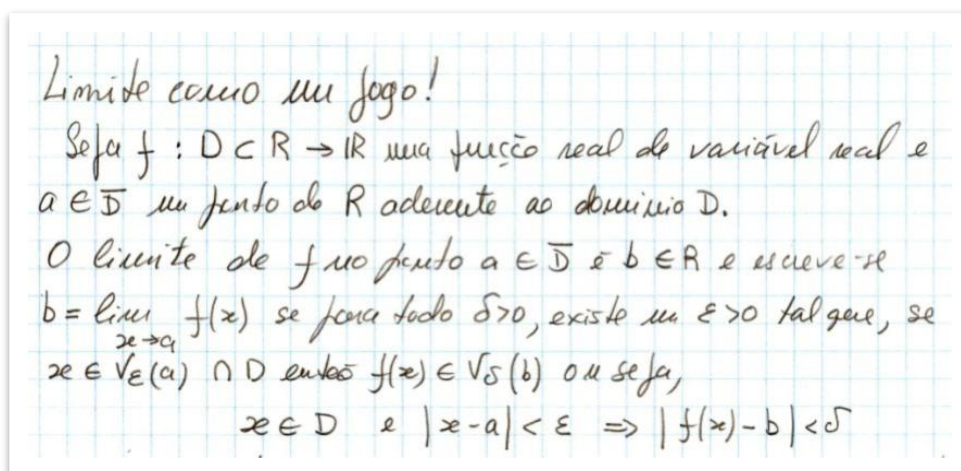 Limite como um jogo!
Seja f : D ⊂ R → IR uma função real de variável real e
a ∈ D̅ um ponto de R aderente ao domínio D.
O limite de f no ponto a ∈ D̅ é b ∈ R e escreve-se
b = lim f(x) se para todo δ>0, existe um ε>0 tal que, se
x→a
x ∈ Vε(a) ∩ D então f(x) ∈ Vδ(b) ou seja,
x ∈ D e |x-a| < ε ⇒ |f(x)-b| < δ